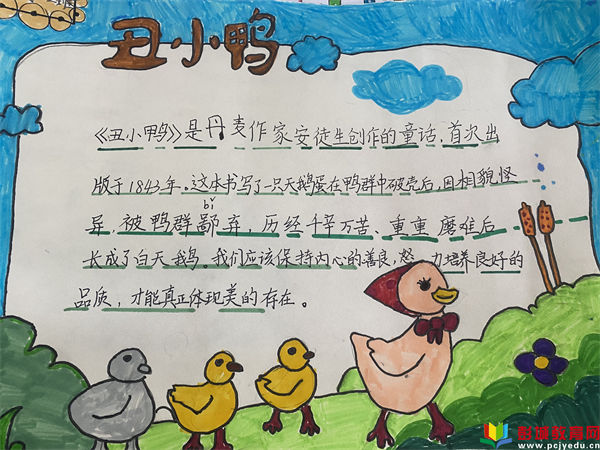 丑小鸭
《丑小鸭》是丹麦作家安徒生创作的童话,首次出
版于1843年,这本书写了一只天鹅蛋在鸭群中破壳后,因相貌怪
bǐ
异,被鸭群鄙弃,历经千辛万苦、重重磨难后
长成了白天鹅。我们应该保持内心的善良,努力培养良好的
品质,才能真正体现美的存在。
教育网
www.pcjyedu.cn